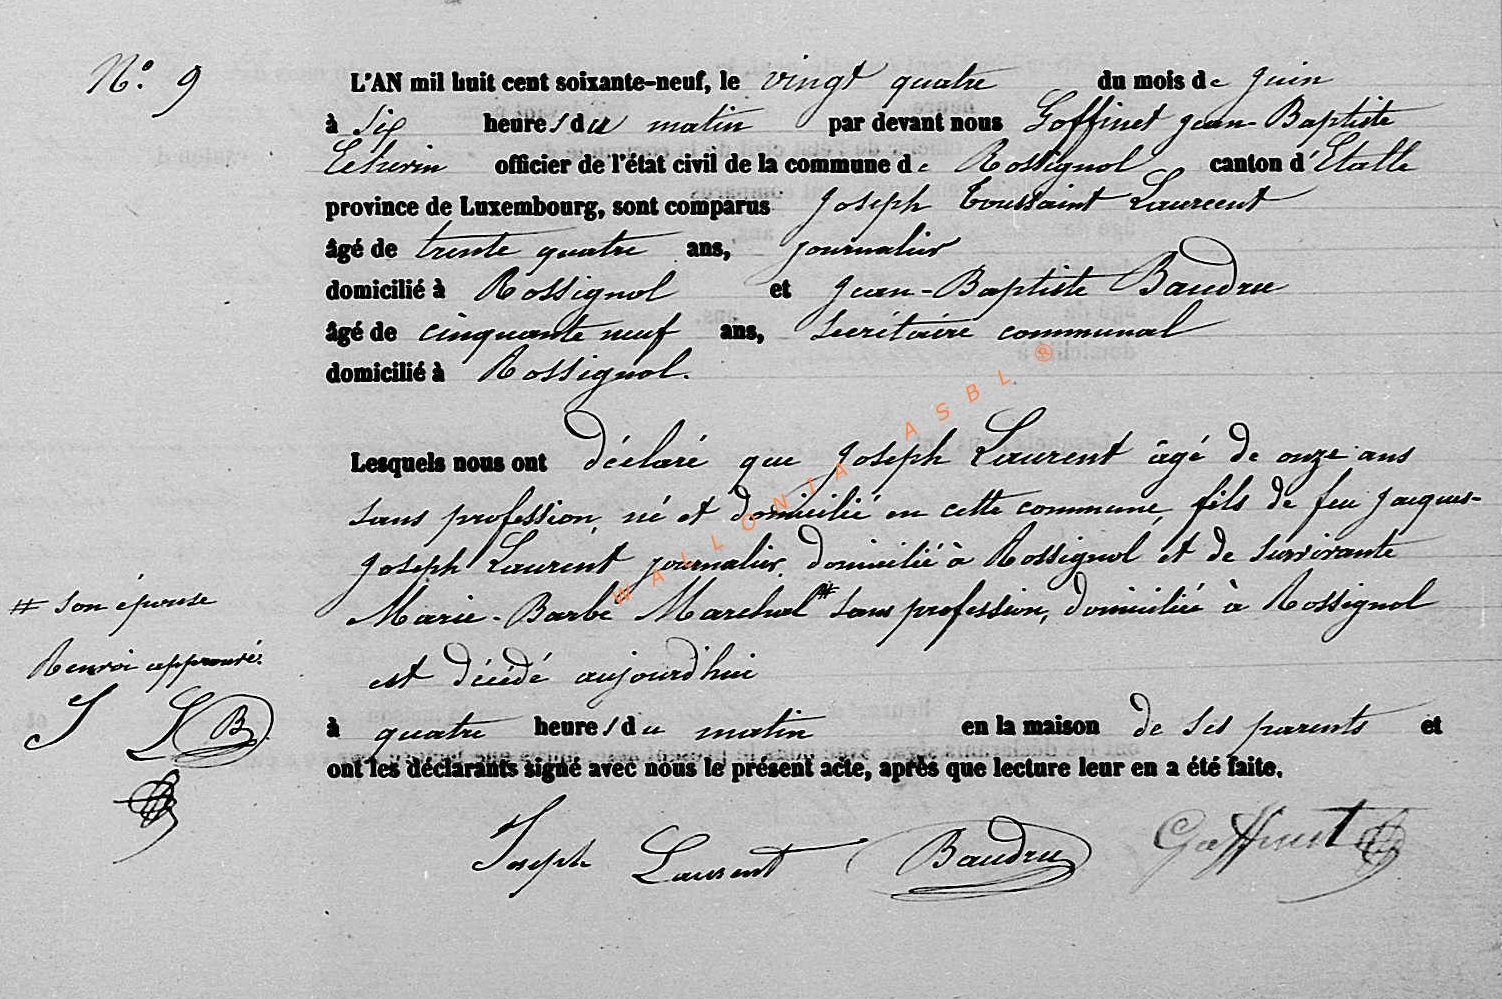 N.° 9
L'AN mil huit cent soixante-neuf, le vingt quatre du mois de juin
à six heures du matin par devant nous Goffinet jean-Baptiste
Echevin officier de l'état civil de la commune de Rossignol canton d'Etalle
province de Luxembourg, sont comparus joseph Toussaint Laurent
âgé de trente quatre ans, journalier
domicilié à Rossignol et jean-Baptiste Baudru
âgé de cinquante neuf ans, secrétaire communal
domicilié à Rossignol.
Lesquels nous ont déclaré que joseph Laurent âgé de onze ans
sans profession, né et domicilié en cette commune, fils de feu jacques-
joseph Laurent journalier, domicilié à Rossignol et de survivante
Marie-Barbe Marechal # sans profession, domiciliée à Rossignol
# son épouse
Renvoi approuvé.
J L B
est décédé aujourd'hui
à quatre heures du matin en la maison de ses parents et
ont les déclarants signé avec nous le présent acte, après que lecture leur en a été faite.
Joseph Laurent Baudru Goffinet
WALLONIA ASBL ®